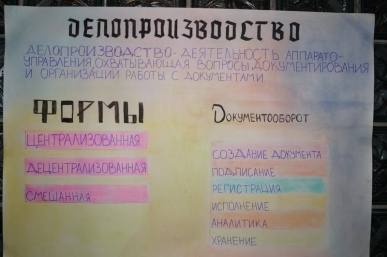 ДЕЛОПРОИЗВОДСТВО
ДЕЛОПРОИЗВОДСТВО- ДЕЯТЕЛЬНОСТЬ АППАРАТО-
УПРАВЛЕНИЯ, ОХВАТЫВАЮЩАЯ ВОПРОСЫ ДОКУМЕНТИРОВАНИЯ
И ОРГАНИЗАЦИИ РАБОТЫ С ДОКУМЕНТАМИ.
ФОРМЫ
ЦЕНТРАЛИЗОВАННАЯ
ДЕЦЕНТРАЛИЗОВАННАЯ
СМЕШАННАЯ
ДОКУМЕНТООБОРОТ
СОЗДАНИЕ ДОКУМЕНТА
ПОДПИСАНИЕ
РЕГИСТРАЦИЯ
ИСПОЛНЕНИЕ
АНАЛИТИКА
ХРАНЕНИЕ